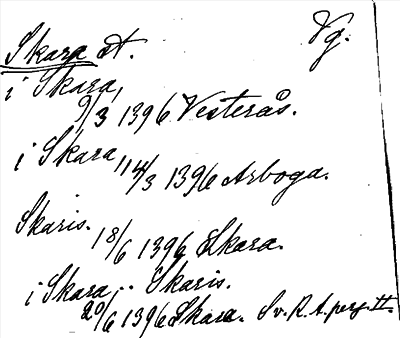 Skara st. Vg.
i Skara,
9/3 1396 Vesterås.
i Skara, 14/3 1396 Arboga.
Skaris. 18/6 1396 Skara.
i Skara, .. Skaris.
20/6 1396 Skara. Sv. R. A. perg. II.